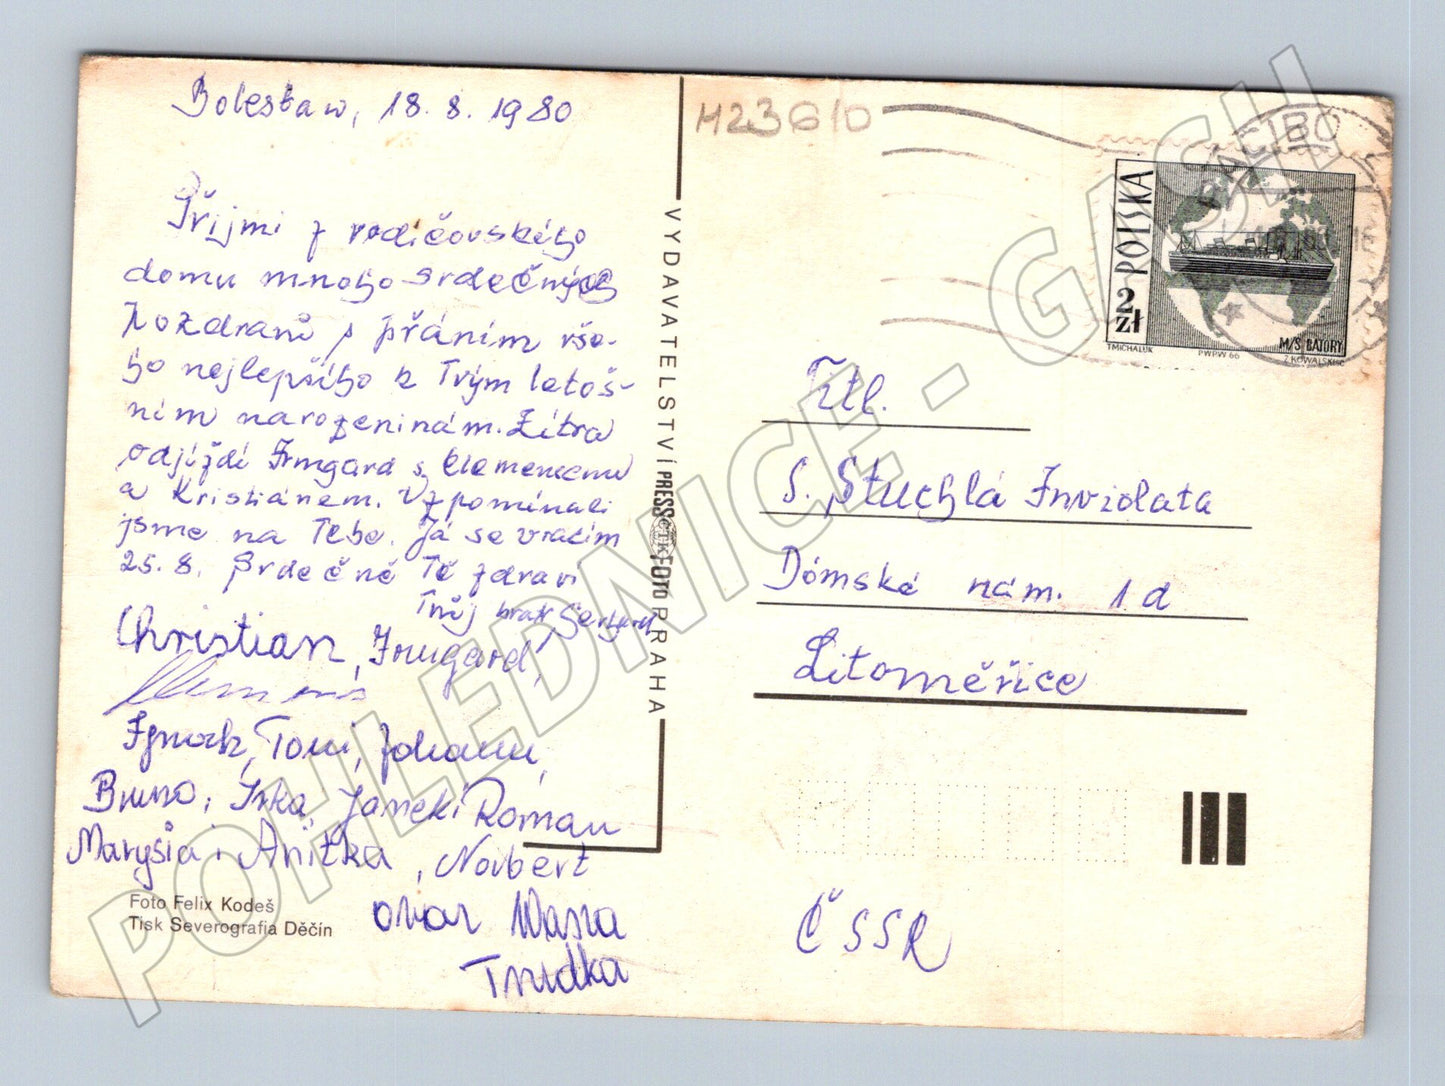 Bolestaw, 18. 8. 1980
Přijmi z rodičovského
domu mnoho srdečných
pozdravů s přáním vše-
ho nejlepšího k Tvým letoš-
ním narozeninám. Zítra
odjíždí Irmgard s Clemensem
a Kristiánem. Vzpomínali
jsme na Tebe. Já se vracím
25. 8. Srdečně Tě zdraví
Tvůj bratr Gerhard
Christian, Irmgard,
Clemens
Ignatz, Toni, Johann,
Bruno, Irka, Janek, Roman
Marysia, Anitka, Norbert
oraz Wasza
Trudka
Foto Felix Kodeš
Tisk Severografia Děčín
VYDAVATELSTVÍ PRESSFOTO PRAHA
ČTK
M23G/0
RACIBÓ
POLSKA
2 zł
M/S BATORY
T.MICHALUK
PWPW 66
Z.KOWALSKI SC
Ttl.
S. Stuchlá Inviolata
Dómské nám. 1d
Litoměřice
ČSSR
POHLEDNICE - GASH